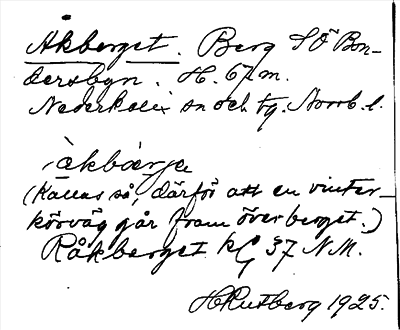 Åkberget. Berg SÖ Bon-
dersbyn. H. 67 m.
Nederkalix sn och tg. Norrb. l.
àkbærje
(Kallas så, därför att en vinter-
körväg går fram över berget.)
Råkberget kG 37 N.M.
HRutberg 1925.